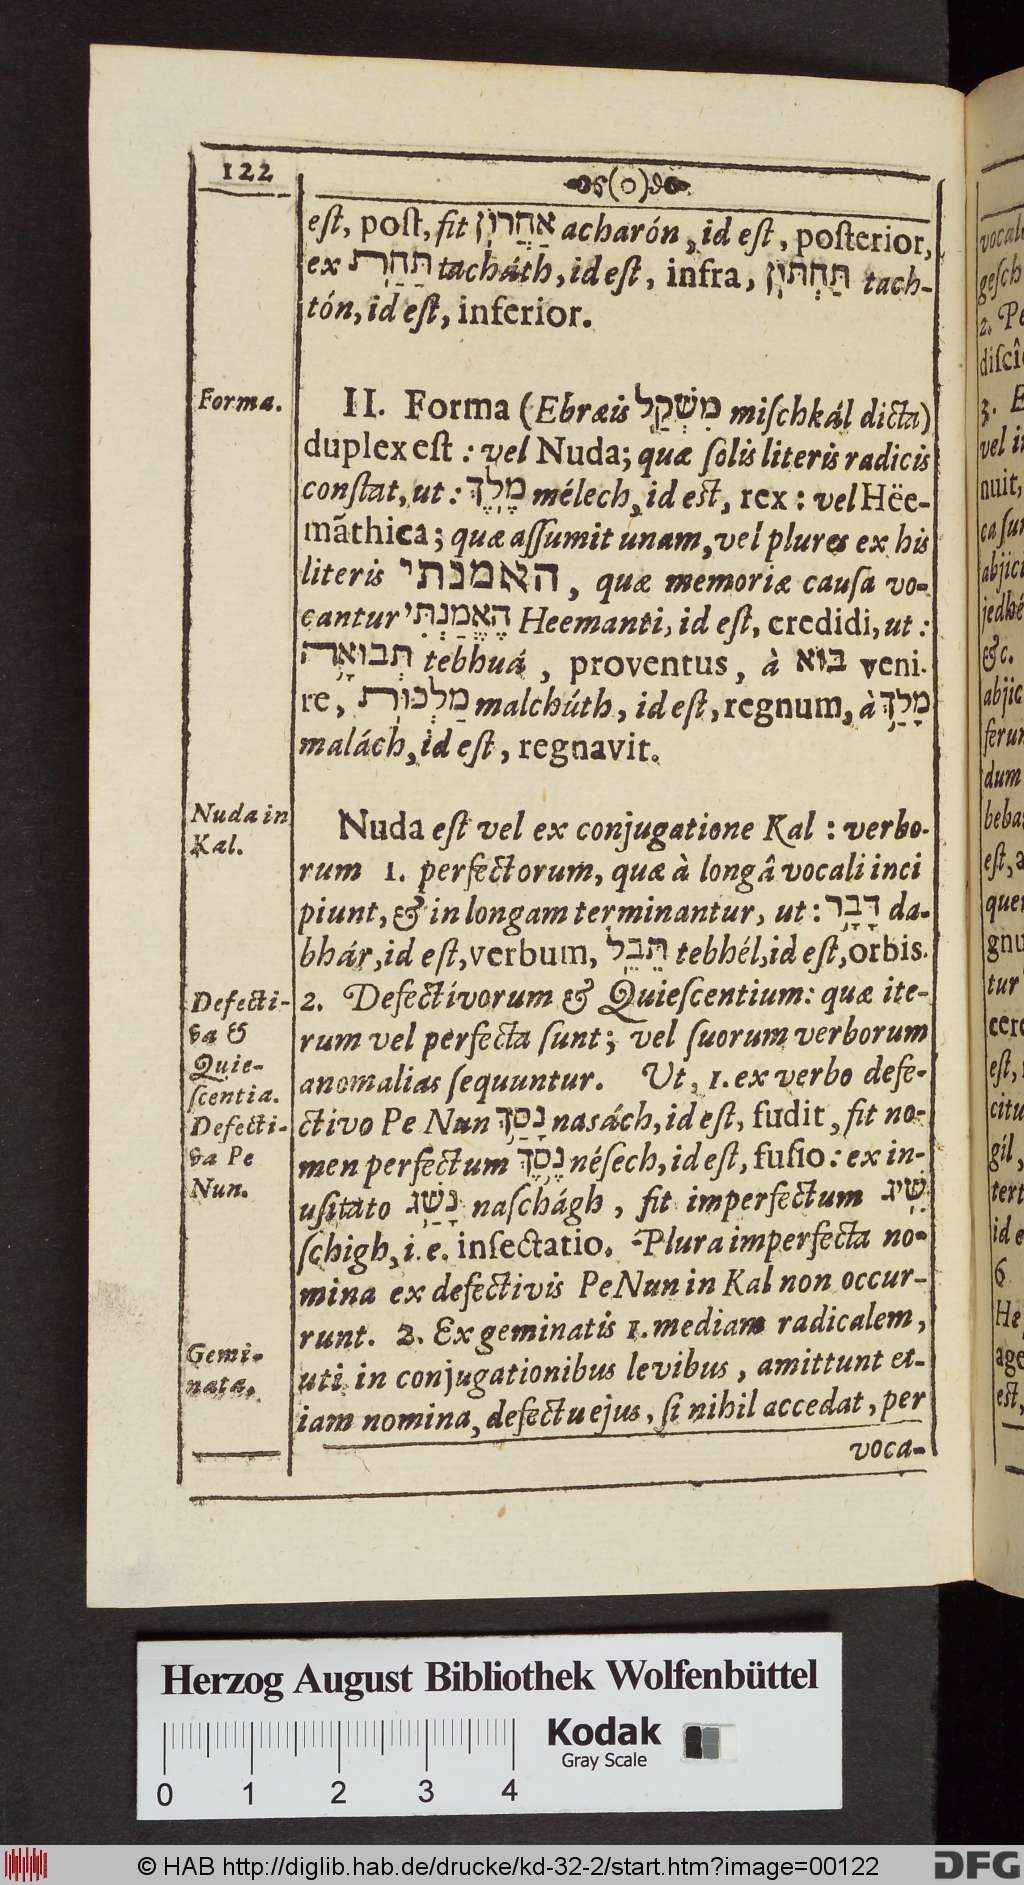 122
est, post, fit אַחֲרוֹן acharón, id est, posterior,
ex תַּחַת tacháth, id est, infra, תַּחְתּוֹן tach-
tón, id est, inferior.
Forma.
II. Forma (Ebræis מִשְׁקָל mischkál dicta)
duplex est : vel Nuda; quæ solis literis radicis
constat, ut : מֶלֶךְ mélech, id est, rex : vel Hëe-
mãthica; quæ assumit unam, vel plures ex his
literis האמנתי, quæ memoriæ causa vo-
cantur הֶאֱמַנְתִּי Heemanti, id est, credidi, ut :
תְּבוּאָה tebhuá, proventus, à בוא veni-
re, מַלְכוּת malchúth, id est, regnum, à מָלַךְ
malách, id est, regnavit.
Nuda in
Kal.
Nuda est vel ex conjugatione Kal : verbo-
rum 1. perfectorum, quæ à longâ vocali inci
piunt, & in longam terminantur, ut : דָּבָר da-
bhár, id est, verbum, תֵּבֵל tebhél, id est, orbis.
Defecti-
va &
Quie-
scentia.
2. Defectivorum & Quiescentium: quæ ite-
rum vel perfecta sunt; vel suorum verborum
anomalias sequuntur. Ut, 1. ex verbo defe-
Defecti-
va Pe
Nun.
ctivo Pe Nun נָסַךְ nasách, id est, fudit, fit no-
men perfectum נֶסֶךְ nésech, id est, fusio: ex in-
usitato נָשַׂג naschágh, fit imperfectum שִׂיג
schigh, i. e. insectatio. Plura imperfecta no-
mina ex defectivis Pe Nun in Kal non occur-
runt. 2. Ex geminatis 1. mediam radicalem,
Gemi-
nata.
uti in conjugationibus levibus, amittunt et-
iam nomina, defectu ejus, si nihil accedat, per
voca-
Herzog August Bibliothek Wolfenbüttel
Kodak
Gray Scale
0 1 2 3 4
© HAB http://diglib.hab.de/drucke/kd-32-2/start.htm?image=00122
DFG